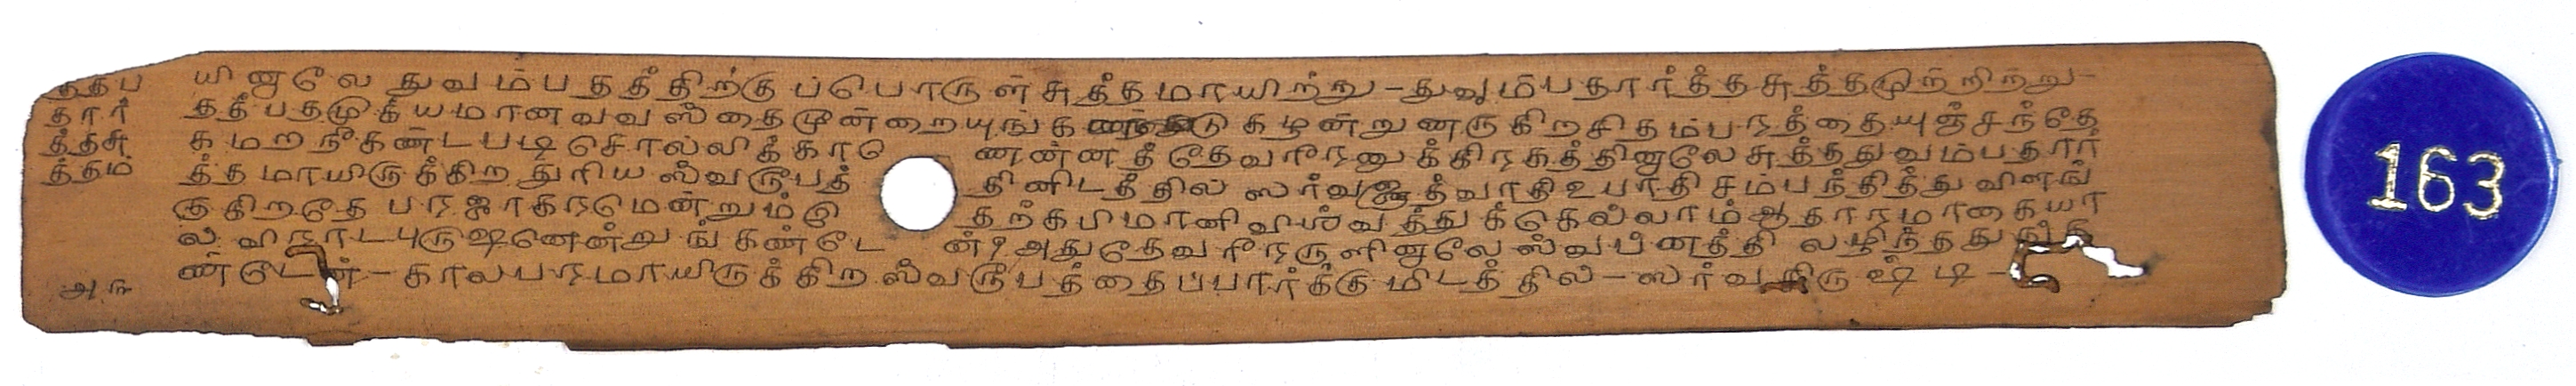 யினாலே துவம்பதத்திற்கு ப்பொருள் சுத்தமாயிற்று - துவம்பதார்த்தசுத்தமுற்றிற்று -
தத்பதமுக்யமான வவஸ்தைமூன்றையுங் கழன்றுணருகிறசிதம்பரத்தையுஞ்சந்தே
கமறநீகண்டபடிசொல்லிக்காட ணன்னத்தேவரீரனுக்கிரகத்தினாலேசுத்ததுவம்பதார்
த்தமாயிருக்கிற துரியஸ்வரூபத் தினிடத்தில் ஸர்வஜ்ஞத்வாதிஉபாதிசம்பந்தித்துவிளங்
குகிறதே பரஜாகரமென்றும் தற்கபிமானிவிஶ்வத்துக்கெல்லாம்ஆதாரமாகையா
ல் விராடபுருஷனென்றுங் கண்டே ன் அதுதேவரீரருளினாலே ஸ்வப்னத்தி லழிந்தது
ண்டேன் - காலபரமாயிருக்கிற ஸ்வரூபத்தைப்பார்க்குமிடத்தில் - ஸர்வ
ததப
தார்
த்தசு
த்தம்
163